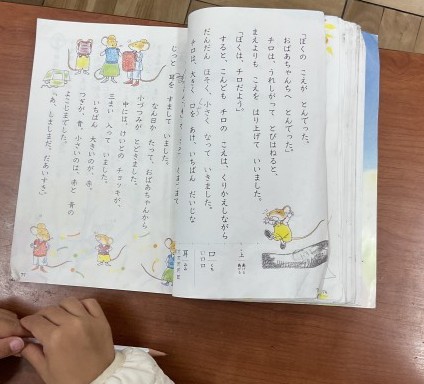 「ぼくの こえが とんでった。
おばあちゃんちへ とんでった。」
チロは、うれしがって とびはねると、
まえよりも こえを はり上げて いいました。
「ぼくは、チロだよう。」
すると、こんども チロの こえは、くりかえしながら
だんだん ほそく、小さく なって いきました。
チロは、大きく 口を あけ、いちばん だいじな
上
口
くち
耳
みみ
じっと 耳を すまして いました。
なん日か たって、おばあちゃんから
小づつみが とどきました。
中には、けいとの チョッキが、
三まい 入って いました。
いちばん 大きいのが、赤、
つぎが、青、小さいのは、赤と 青の
よこじまでした。
「あ、しましまだ。だあいすき。」